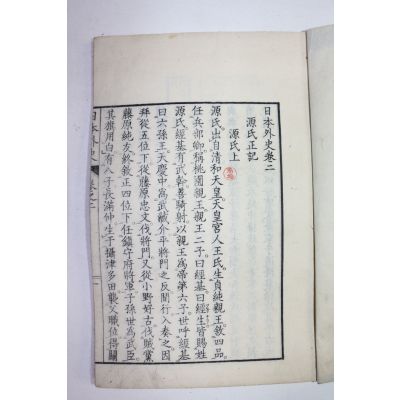 日本外史卷二
源氏正記
源氏上
源氏出自清和天皇天皇宮人王氏生貞純親王敘四品
任兵部卿稱桃園親王親王二子曰經基曰經生皆賜姓
源氏經基有武幹善騎射以親王為帝第六子世呼經基
曰六孫王天慶中為武藏介平將門之反聞行入奏之因
拜從五位下從藤原忠文伐將門又從小野好古伐賊黨
藤原純友終敘正四位下任鎮守府將軍子孫世為武臣
其旗用白有八子長滿仲生于攝津多田襲父職位得關
日本外史 卷之二